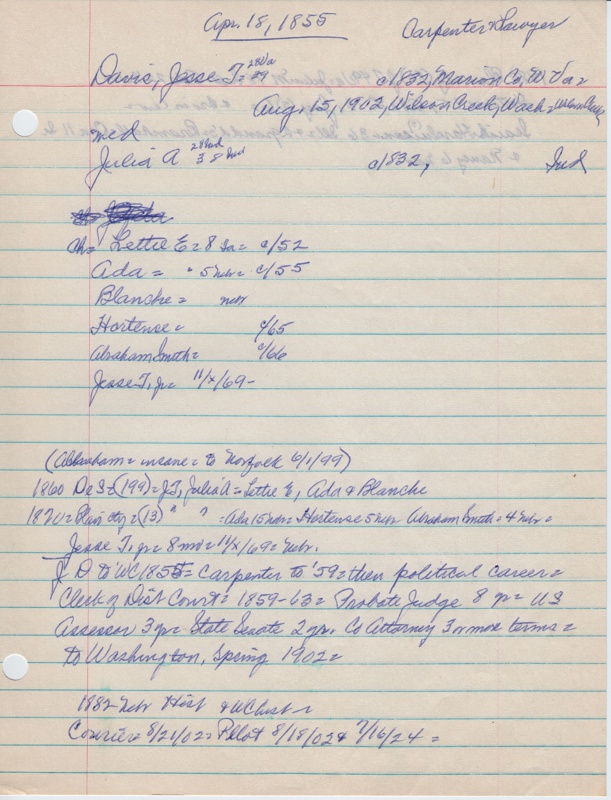 Apr. 18, 1855
Carpenter & Lawyer
Davis, Jesse T. = 28 Va c/1832, Marion Co, W. Va =
Aug. 15, 1902, Wilson Creek, Wash =
md
Julia A 28 Ind c/1832, Ind
38 Ind
Ch = Lettie E = 8 Ia = c/52
Ada = " 5 Nebr = c/55
Blanche = nebr
Hortense = c/65
Abraham Smith = c/66
Jesse T, jr = 11/x/69 -
(Abraham = insane = to Norfolk 6/1/99)
1860 De S = (199) = J T, Julia A = Lettie E, Ada & Blanche
1870 = Plain cty = (13) " " = Ada 15 Nebr = Hortense 5 Nebr Abraham Smith = 4 Nebr =
Jesse T, jr = 8 mo = 11/x/69 = Nebr.
J D to WC 1855 = Carpenter to '59 = then political career =
Clerk of Dist Court = 1859-63 = Probate Judge 8 yr = US
Assessor 3 yr = State Senate 2 yr. Co Attorney 3 or more terms =
to Washington, Spring 1902 =
1882 Nebr Hist
Courier = 8/21/02 = Pilot 8/18/02 & 7/16/24 =